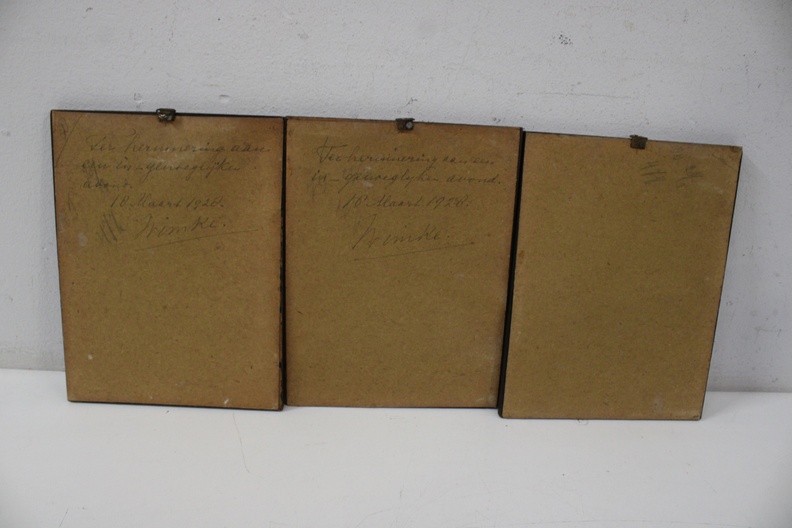 Ter herinnering aan
een in-genoegelijken
avond.
18 Maart 1924.
Wimke.
Ter herinnering aan een
in-genoegelijken avond.
18 Maart 1924.
Wimke.